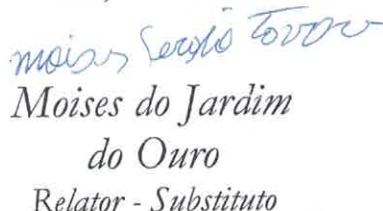 Moises Sergio
Moises do Jardim
do Ouro
Relator - Substituto